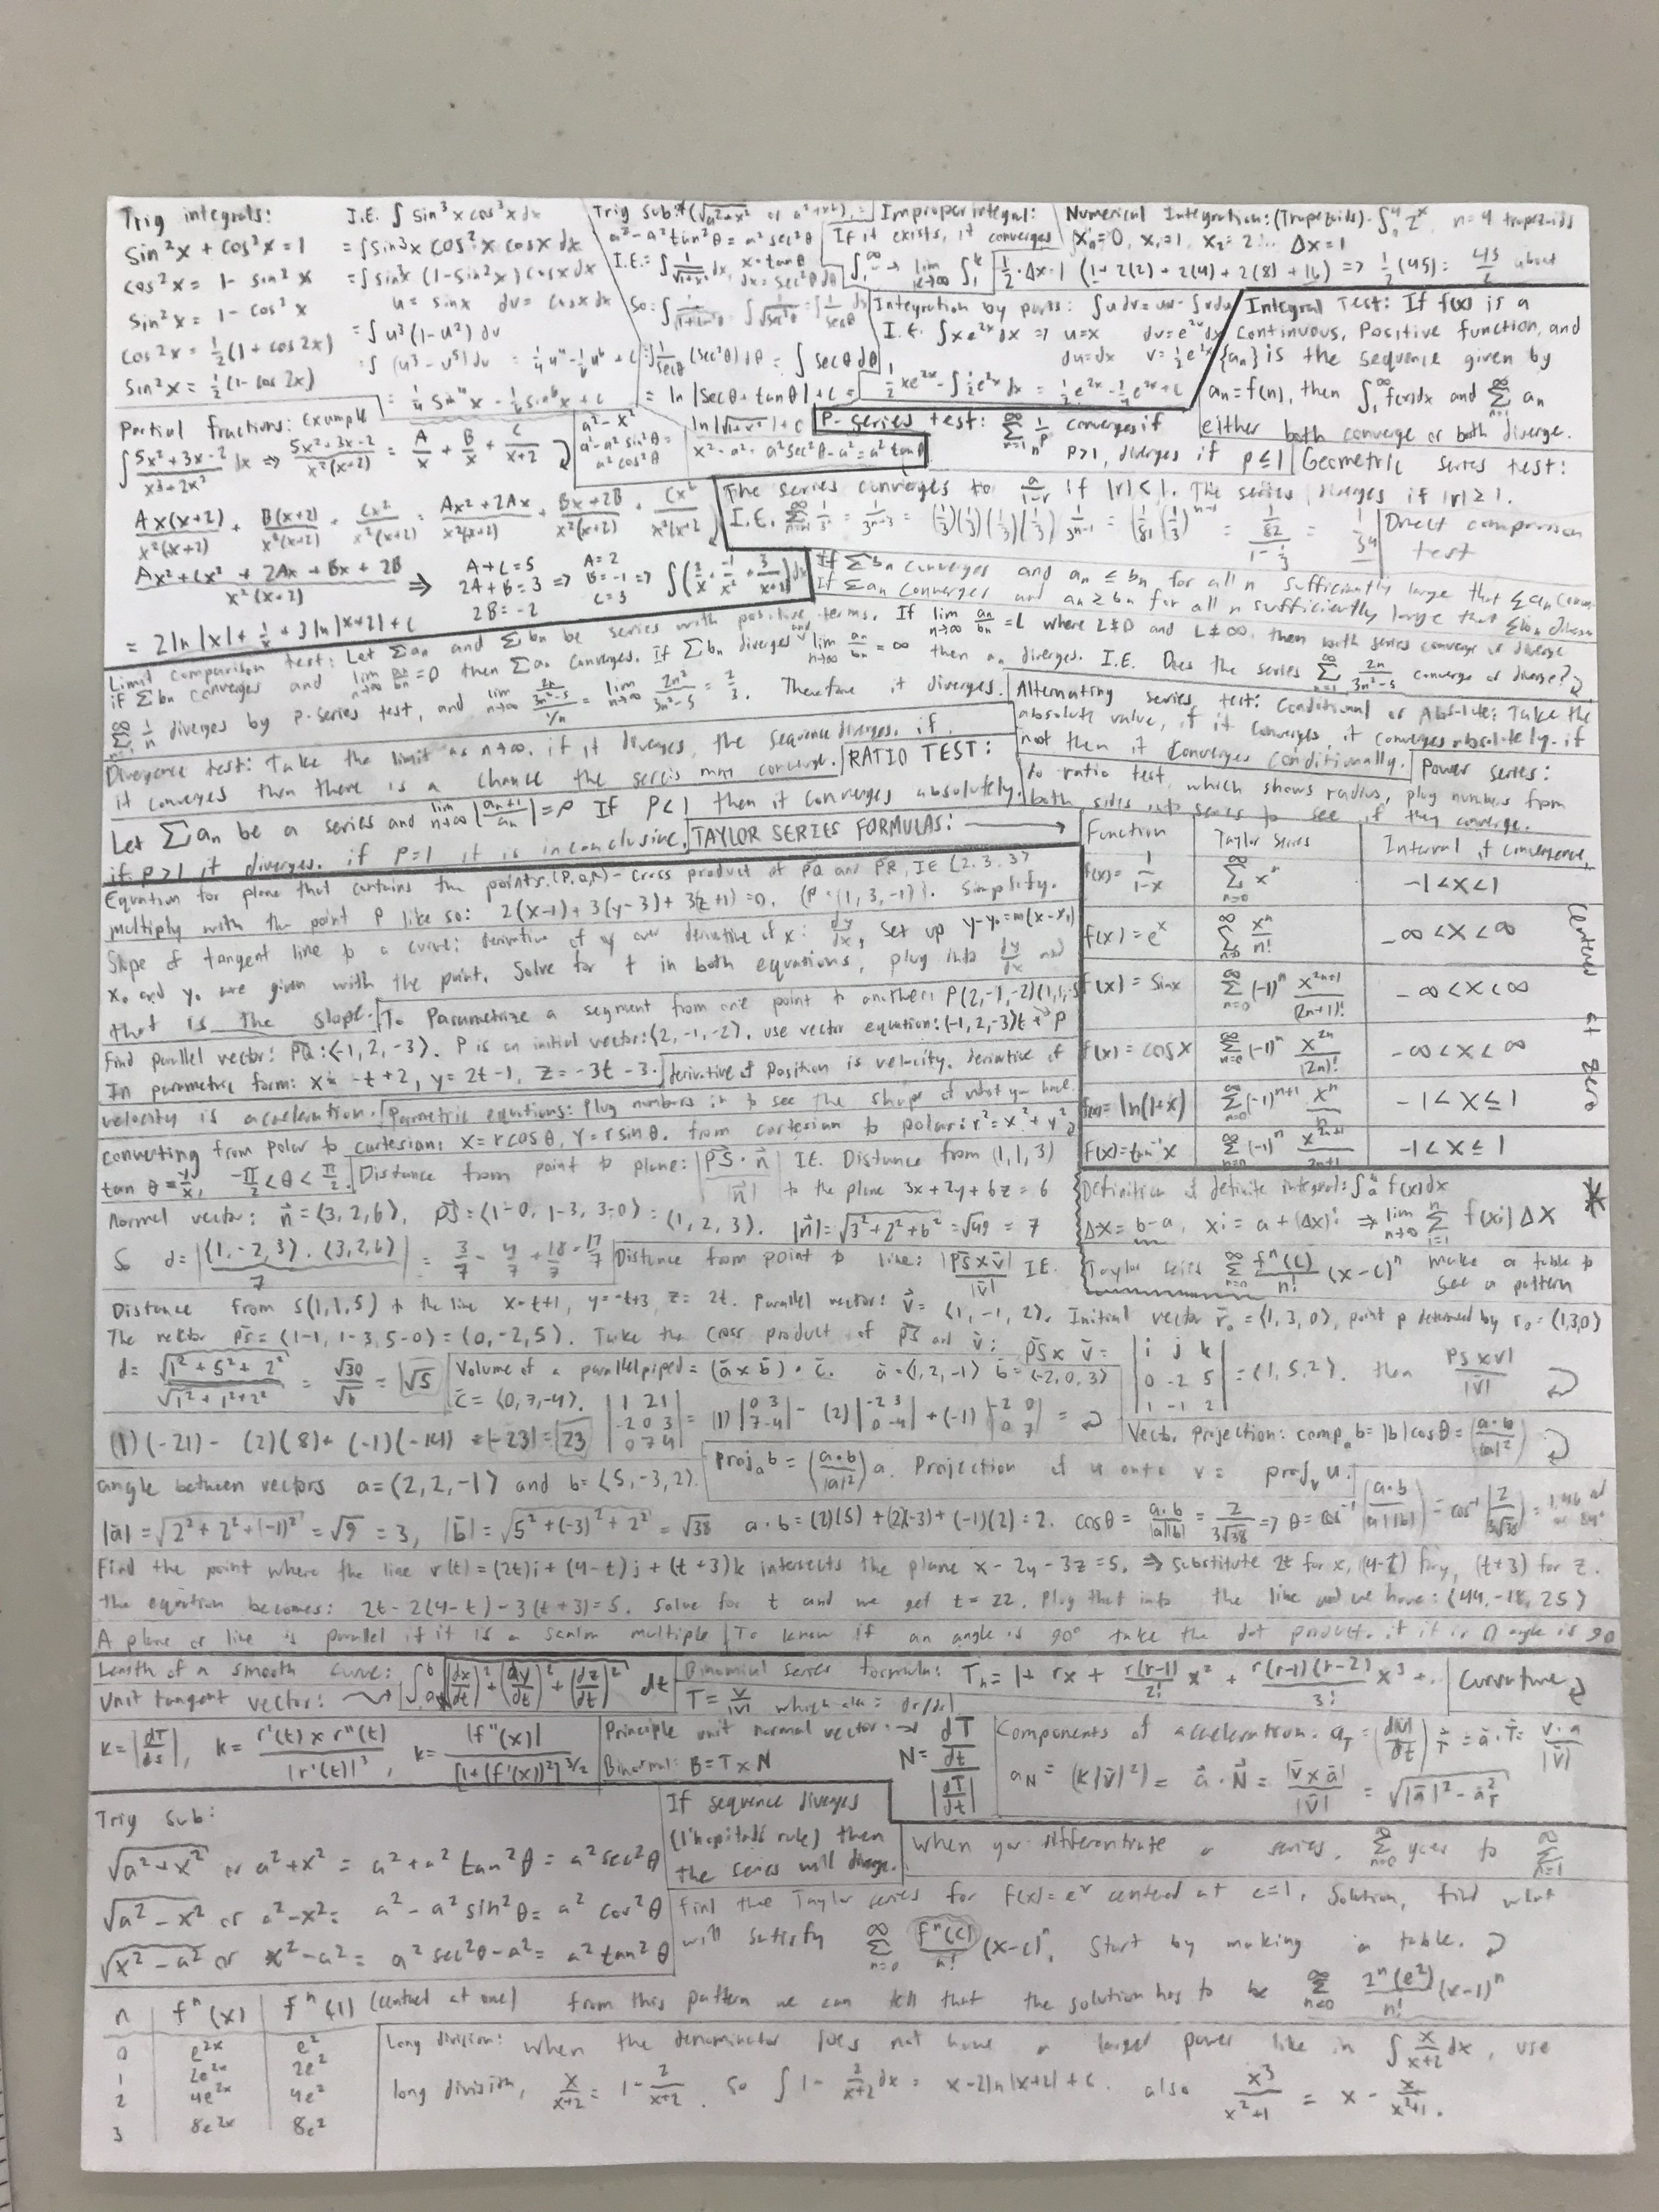 Trig integrals:
sin²x + cos²x = 1
cos²x = 1 - sin²x
sin²x = 1 - cos²x
cos²x = ½(1 + cos 2x)
sin²x = ½(1 - cos 2x)
I.E. ∫ sin³x cos³x dx
= ∫ sin³x cos²x cosx dx
= ∫ sin³x (1-sin²x) cosx dx
u = sinx dv = cosx dx
= ∫ u³(1-u²) dv
= ∫ (u³ - u⁵) dv = ¼u⁴ - ⅙u⁶ + C
= ¼ sin⁴x - ⅙ sin⁶x + C
Trig Sub: (√a²+x² or a²+x²)
I.E.: ∫ 1/√(1+x²) dx, x = tanθ
dx = sec²θ dθ
So:
∫ 1/secθ (sec²θ) dθ = ∫ secθ dθ
= ln |secθ + tanθ| + C =
a²-x²
a²-a² sin²θ =
a² cos²θ
x²-a² = a² sec²θ - a² = a² tanθ
Improper integral:
If it exists, it converges
∫₁^∞ → lim k→∞ ∫₁^k
Numerical Integration: (Trapezoids) - ∫₀⁴ 2ˣ n = 4 trapezoids
X₀ = 0, X₁ = 1, X₂ = 2... Δx = 1
½·Δx·1 (1 + 2(2) + 2(4) + 2(8) + 16) => ½(45) = 45/2 about
Integration by parts: ∫u dv = uv - ∫v du
I.E. ∫xe²ˣ dx => u=x dv = e²ˣ dx
du=dx v = ½e²ˣ
½xe²ˣ - ∫½e²ˣ dx = ½e²ˣ - ¼e²ˣ + C
Integral Test: If f(x) is a
Continuous, Positive function, and
{aₙ} is the sequence given by
aₙ = f(n), then ∫₁^∞ f(x)dx and Σ n=1 ∞ aₙ
either both converge or both diverge.
Partial fractions: Example
∫ (5x²+3x-2)/(x³+2x²) dx => (5x²+3x-2)/(x²(x+2)) = A/x + B/x + C/(x+2)
Ax(x+2)/x²(x+2) + B(x+2)/x²(x+2) + Cx²/x²(x+2) = (Ax²+2Ax)/x²(x+2) + (Bx+2B)/x²(x+2) + Cx²/x²(x+2
(Ax² + Cx² + 2Ax + Bx + 2B)/x²(x+2) =>
A+C=5 A=2
2A+B=3 => B=-1 => ∫(2/x + -1/x² + 3/(x+2))dx
2B=-2 C=3
= 2ln|x| + 1/x + 3ln|x+2| + C
P-series test: Σ n=1 ∞ 1/nᵖ converges if
p>1, diverges if p≤1
Geometric series test:
The series converges to a/(1-r) if |r|<1. The series diverges if |r|≥1.
Direct comparison
test
If Σbₙ converges and aₙ ≤ bₙ for all n sufficiently large that Σaₙ
If Σaₙ converges and aₙ ≥ bₙ for all n sufficiently large that Σbₙ
Limit comparison test: Let Σaₙ and Σbₙ be series with positive terms. If lim n→∞ aₙ/bₙ = L where L≠0 and L≠∞, then both series converge or diverge
if Σbₙ converges and lim n→∞ aₙ/bₙ = 0 then Σaₙ converges. If Σbₙ diverges and lim n→∞ aₙ/bₙ = ∞ then aₙ diverges. I.E. Does the series Σ n=1 ∞ 2n/(3n²-5) converge or diverge?
Σ n=1 ∞ 1/n diverges by p-series test, and lim n→∞ (2n/(3n²-5))/(1/n) = lim n→∞ 2n²/(3n²-5) = 2/3. Therefore it diverges.
Divergence test: Take the limit as n→∞. if it diverges, the sequence diverges. if
it converges then there is a chance the sereis may converge.
Alternating series test: Conditional or Absolute: Take the
absolute value, if it converges, it converges absolutely. if
not then it converges conditionally.
Power series:
do ratio test, which shows radius, plug numbers from
both sides into series to see if they converge.
RATIO TEST:
Let Σaₙ be a series and lim n→∞ |aₙ₊₁/aₙ| = ρ If P<1 then it converges absolutely.
if p>1 it diverges. if P=1 it is inconclusive.
TAYLOR SERIES FORMULAS: →
Function Taylor Series Interval of convergence,
f(x) = 1/(1-x) Σ n=0 ∞ xⁿ -1<x<1
f(x) = eˣ Σ ∞ xⁿ/n! -∞<x<∞
f(x) = Sinx Σ n=0 ∞ (-1)ⁿ x²ⁿ⁺¹/(2n+1)! -∞<x<∞
f(x) = cosx Σ n=0 ∞ (-1)ⁿ x²ⁿ/(2n)! -∞<x<∞
f(x) = ln(1+x) Σ ∞ (-1)ⁿ⁺¹ xⁿ/n -1<x≤1
f(x) = tan⁻¹x Σ n=0 ∞ (-1)ⁿ x²ⁿ⁺¹/2n+1 -1<x≤1
Centered at zero
Equation for plane that contains the points. (P,Q,R) - Cross product of PQ and PR, IE (2,3,3)
multiply with the point P like so: 2(x-1) + 3(y-3) + 3(z+1) = 0. (P = (1, 3, -1)). Simplify.
Slope of tangent line to a curve: derivative of y over derivative of x: dy/dx, set up y-y₀=m(x-x₀)
x₀ and y₀ are given with the point. Solve for t in both equations, plug into dy/dx and
that is the slope.
To Parametrize a segment from one point to another: P(2,-1,-2)(1,1,-5
find parallel vector: PQ: (-1, 2, -3). P is an initial vector: (2, -1, -2), use vector equation: (-1, 2, -3)t + P
In parametric form: x = -t+2, y = 2t-1, z = -3t-3.
derivative of position is velocity. derivative of
velocity is acceleration.
Parametric equations: Plug numbers in to see the shape of what you have.
converting from Polar to cartesian: x = r cosθ, Y = r sinθ. from cartesian to polar: r² = x² + y²,
tan θ = y/x, -π/2 < θ < π/2.
Distance from point to plane: |PS · n|/|n| IE. Distance from (1,1,3)
to the plane 3x + 2y + 6z = 6
Normal vector: n = (3,2,6), PS = (1-0, 1-3, 3-0) = (1, 2, 3). |n| = √3²+2²+6² = √49 = 7
So d = |(1,-2,3) · (3,2,6)|/7 = 3/7 - 4/7 + 18/7 = 17/7
Definition of definite integral: ∫ₐᵇ f(x)dx *
Δx = b-a/n, xi = a + (Δx)i => lim n→∞ Σ i=1 n f(xi) Δx
Taylor series Σ n=0 ∞ fⁿ(c)/n! (x-c)ⁿ make a table to
see a pattern
Distance from point to line: |PS x v|/|v| IE.
Distance from S(1,1,5) to the line x=t+1, y=-t+3, z=2t. parallel vector: v = (1,-1,2). Initial vector r₀ = (1,3,0), point p determined by r₀ = (1,3,0)
The vektor PS = (1-1, 1-3, 5-0) = (0,-2,5). Take the cross product of PS and v: PS x v = |i j k / 0 -2 5 / 1 -1 2| = (1,5,2). then PS x v|/|v|
d = √1²+5²+2²/√1²+1²+2² = √30/√6 = √5
Volume of a parallelpiped = (a x b) · c. a = (1, 2, -1) b = (-2, 0, 3)
c = (0, 7, -4). |1 2 1 / -2 0 3 / 0 7 4| = (1)|0 3 / 7 -4| - (2)|-2 3 / 0 -4| + (-1)|-2 0 / 0 7| =
(1)(-21) - (2)(8) + (-1)(-14) = |-23| = 23
Vector Projection: compₐb = |b|cosθ = (a·b/|a|²)
Projₐb = (a·b/|a|²)a. Projection of u onto v = projᵥu.
angle between vectors a = (2,2,-1) and b = (5,-3,2).
|a| = √2²+2²+(-1)² = √9 = 3, |b| = √5²+(-3)²+2² = √38 a·b = (2)(5) + (2)(-3) + (-1)(2) = 2. cosθ = a·b/|a||b| = 2/3√38 => θ = cos⁻¹(a·b/|a||b|) = cos⁻¹(2/3√38) =
Find the point where the line r(t) = (2t)i + (4-t)j + (t+3)k intersects the plane x - 2y - 3z = 5. => substitute 2t for x, (4-t) for y, (t+3) for z.
the equation becomes: 2t - 2(4-t) - 3(t+3) = 5. Solve for t and we get t = 22. Plug that into the line and we have: (44, -18, 25)
A plane or line is parallel if it is a scalar multiple
To know if an angle is 90° take the dot product. if it is 0 angle is 90
Length of a smooth curve: ∫ₐᵇ √(dx/dt)² + (dy/dt)² + (dz/dt)² dt
Unit tangent vector:
T = v/|v|
Binomial series formula: Tₙ = 1 + rx + r(r-1)/2! x² + r(r-1)(r-2)/3! x³ + ..
Curvature
K = |dT/ds|, K = r'(t) x r"(t)/|r'(t)|³, K = |f"(x)|/[1+(f'(x))²]³/²
Principle unit normal vector: →
Binormal: B = T x N
N = dT/dt / |dT/dt|
Components of acceleration: a_T = (d|v|/dt) T = a · T = v·a/|v|
a_N = (K|v|²) = a · N = |v x a|/|v| = √|a|² - a_T²
Trig sub:
√a²+x² or a²+x² = a²+a² tan²θ = a² sec²θ
√a²-x² or a²-x² = a² - a² sin²θ = a² cos²θ
√x²-a² or x²-a² = a² sec²θ - a² = a² tan²θ
If sequence diverges
(l'hopitals rule) then
the series will diverge.
When you differentiate a series, Σ n=0 ∞ goes to Σ n=1 ∞
find the Taylor series for f(x) = eˣ centered at c=1. Solution, find what
will satisfy Σ n=0 ∞ fⁿ(c)/n! (x-c)ⁿ. Start by making a table.
n fⁿ(x) fⁿ(1) (centered at one) from this pattern we can tell that the solution has to be Σ n=0 ∞ 2ⁿ(e²)/n! (x-1)ⁿ
0 e²ˣ e²
1 2e²ˣ 2e²
2 4e²ˣ 4e²
3 8e²ˣ 8e²
Long division: When the denominator does not have a larger power like in ∫ x/(x+2) dx, use
long division, x/(x+2) = 1 - 2/(x+2). So ∫ 1 - 2/(x+2) dx = x - 2ln|x+2| + C. also x³/(x²+1) = x - x/(x²+1).